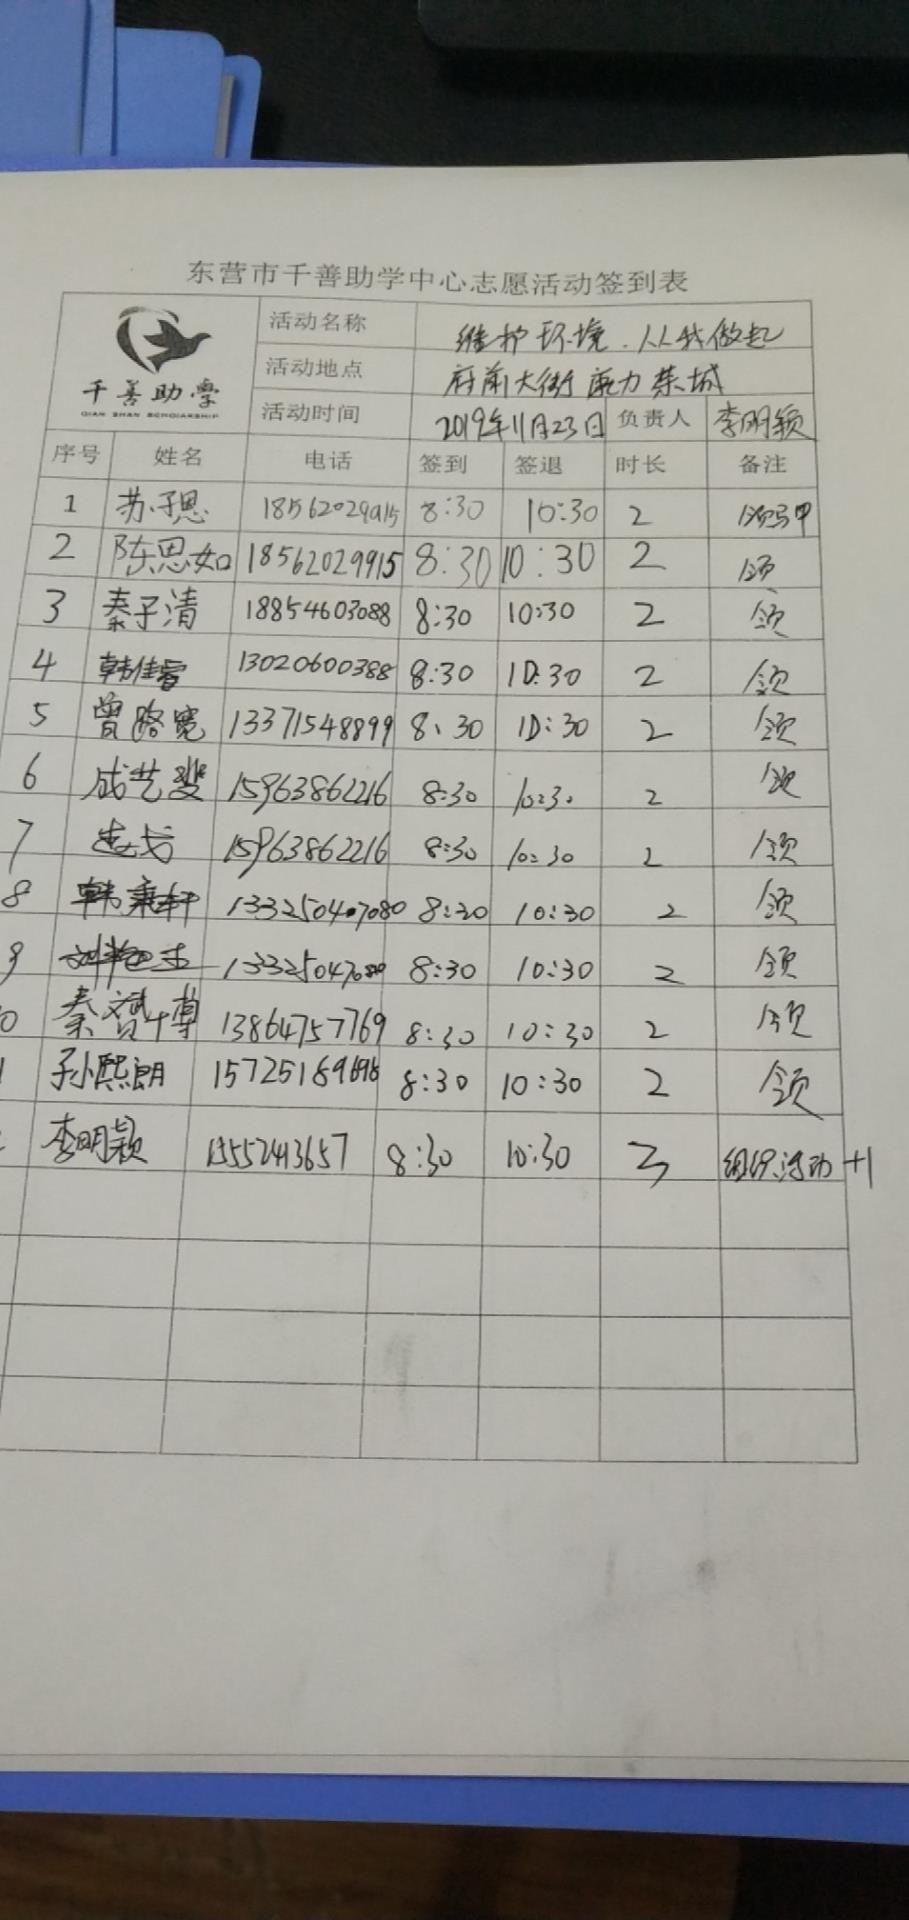 东营市千善助学中心志愿活动签到表
千善助学
QIAN SHAN SCHOLARSHIP
活动名称 维护环境.从我做起
活动地点 府前大街
活动时间 2019年11月23日 负责人 李明颖
序号 姓名 电话 签到 签退 时长 备注
1 苏子恩 18562029915 8:30 10:30 2 领马甲
2 陈思如 18562029915 8:30 10:30 2 领
3 秦子清 18854603088 8:30 10:30 2 领
4 韩佳睿 13020600388 8:30 10:30 2 领
5 曾路宽 13371548899 8:30 10:30 2 领
6 成艺斐 15963862216 8:30 10:30 2 领
7 15963862216 8:30 10:30 2 领
8 韩秉轩 8:30 10:30 2 领
9 13325047080 8:30 10:30 2 领
0 秦赟博 13864757769 8:30 10:30 2 领
孙熙朗 15725189698 8:30 10:30 2 领
李明颖 15552413657 8:30 10:30 3 组织活动+1